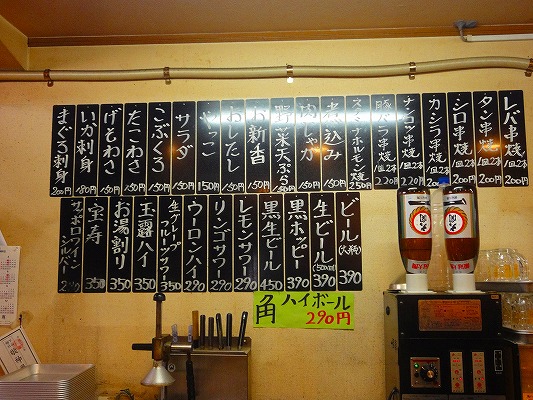 レバ串焼 1皿2本 200
タン串焼 1皿2本 200
シロ串焼 1皿2本 200
カシラ串焼 1皿2本 220
ナンコツ串焼 1皿2本 220
豚バラ串焼 1皿2本
スタミナホルモン焼 250
煮込み 150
肉じゃが 150
野菜天ぷら 150
お新香 150
おしたし 150
やっこ 150円
サラダ 150
こぶくろ 150
たこわさ 150
げそわさ 150
いか刺身 180円
まぐろ刺身 200円
ビール(大瓶) 390
生ビール(500ml) 390
黒ホッピー 390
黒生ビール 450
レモンサワー 290
リンゴサワー 290
ウーロンハイ 290
生グレープフルーツサワー 350
玉露ハイ 350
お湯割り 350
宝寿 350
サッポロワインシルバー 290
角ハイボール
290円